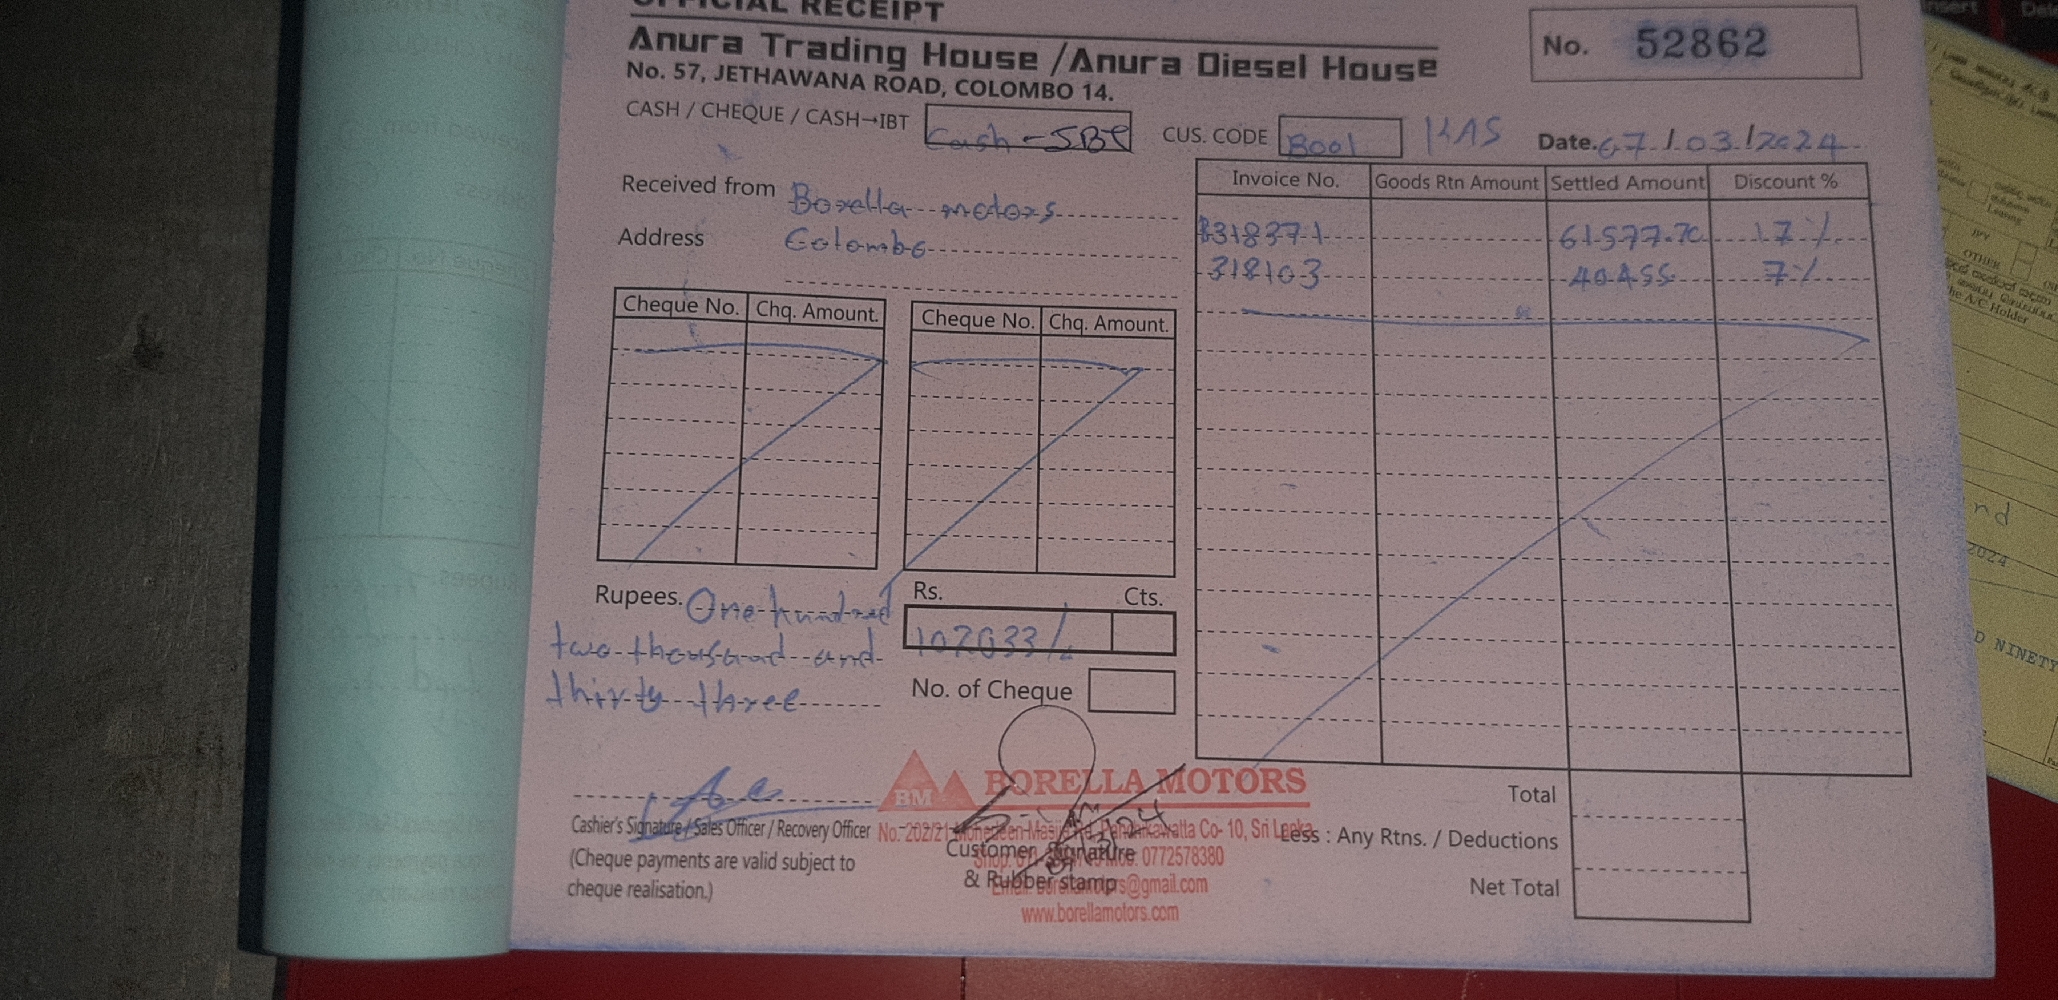 OFFICIAL RECEIPT
Anura Trading House /Anura Diesel House
No. 57, JETHAWANA ROAD, COLOMBO 14.
No. 52862
CASH / CHEQUE / CASH→IBT Cash - IBT CUS. CODE Boo1 KAS Date. 07/03/2024
Received from Borella motors
Address Colombo
Invoice No. Goods Rtn Amount Settled Amount Discount %
318371 61577.70 17%
318103 40455 7%
Cheque No. Chq. Amount. Cheque No. Chq. Amount.
Rupees. One hundred
two thousand and
thirty three
Rs. Cts.
102033/
No. of Cheque
BM BORELLA MOTORS
Cashier's Signature / Sales Officer / Recovery Officer
(Cheque payments are valid subject to
cheque realisation.)
No. 202/21 Kawatta Co- 10, Sri Lanka
Customer Signature 0772578380
& Rubber stamp @gmail.com
www.borellamotors.com
Total
Less : Any Rtns. / Deductions
Net Total
OTHER
the A/C Holder
nd
2024
D NINETY
Insert